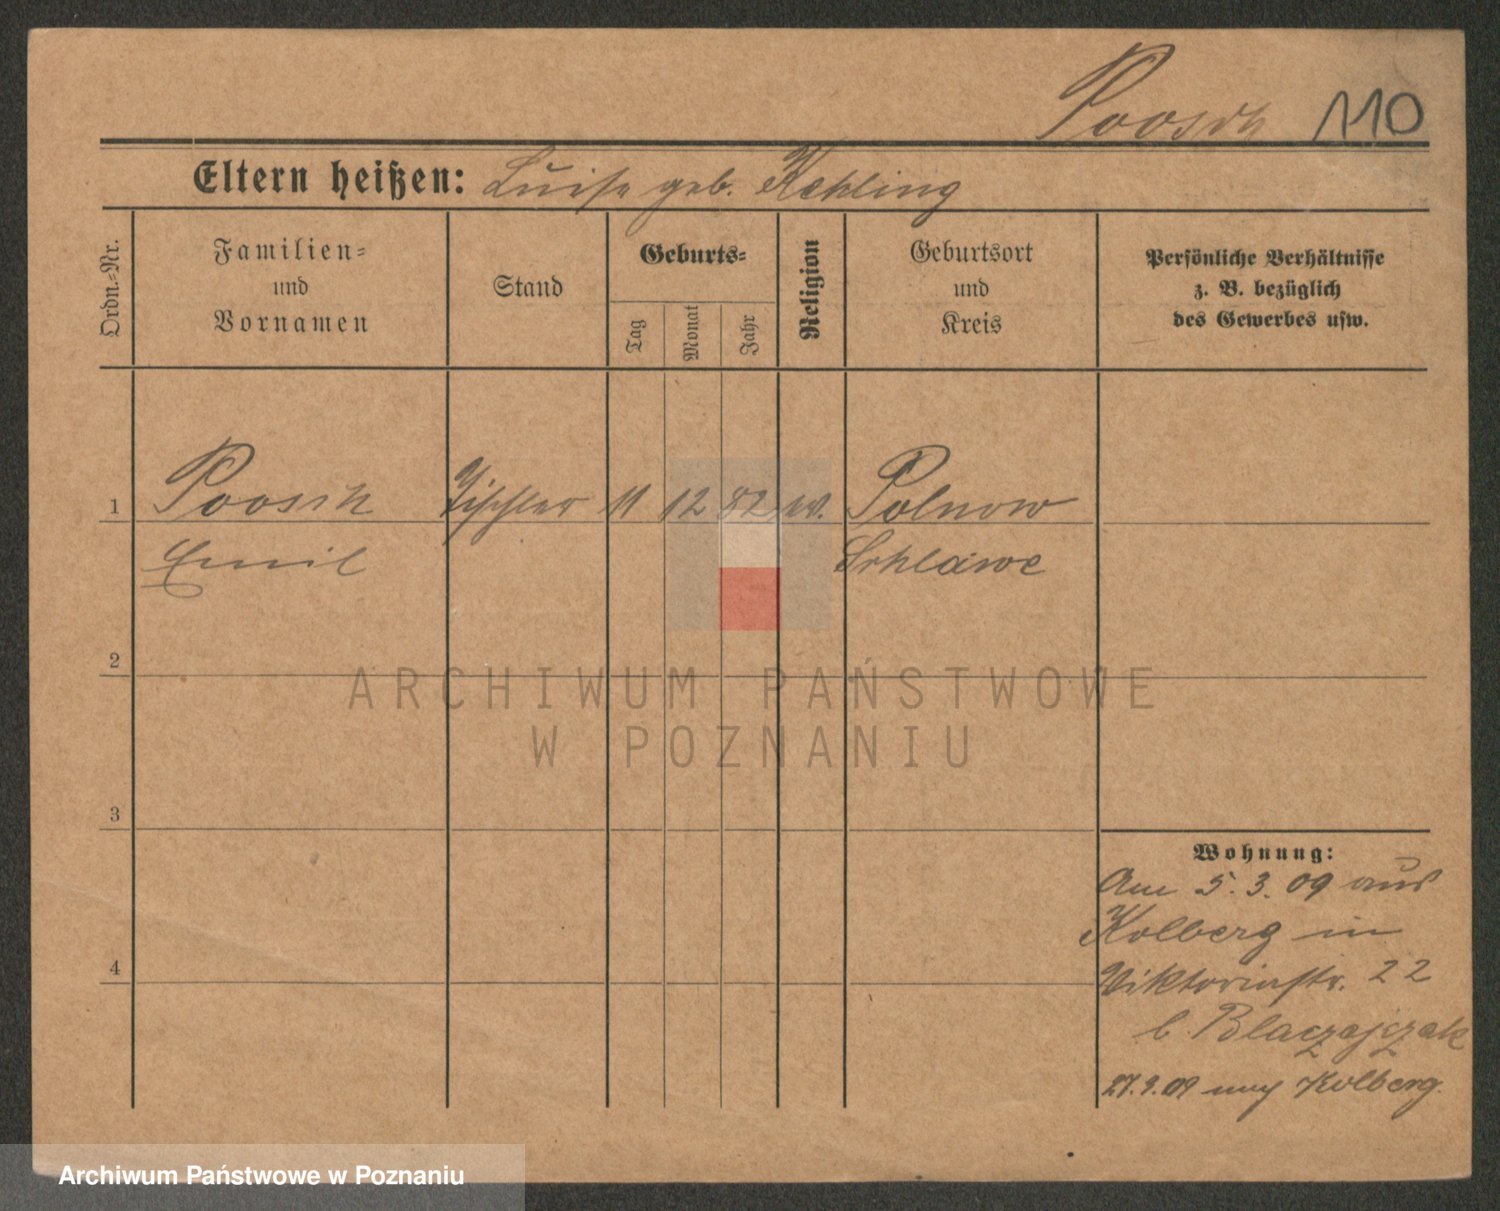 Poosch 110
Eltern heißen: Luise geb. Kehling
Ordn.-Nr.
Familien-
und
Vornamen
Stand
Geburts-
Tag
Monat
Jahr
Religion
Geburtsort
und
Kreis
Persönliche Verhältnisse
z. B. bezüglich
des Gewerbes usw.
1 Poosch Tischler 11 12 82 ev. Polnow
Emil Schlawe
2
ARCHIWUM PAŃSTWOWE
W POZNANIU
3
Wohnung:
Am 5.3.09 aus
Kolberg in
4
Viktoriastr. 22
b. Blaczejczak
27.9.09 nach Kolberg.
Archiwum Państwowe w Poznaniu